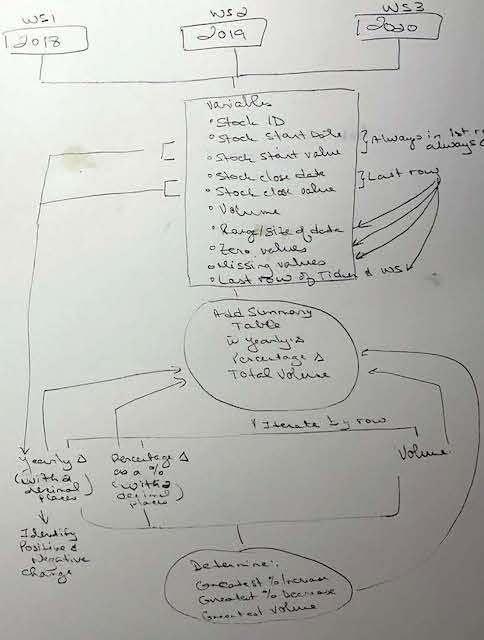 WS1
2018
WS2
2019
WS3
2020
Variables
• Stock ID
• Stock start Date
• Stock start value
• Stock close date
• Stock close value
• Volume
• Range/size of data
• Zero values
• Missing values
• Last row of Ticker & WS
} Always in 1st
always
} Last row
Add Summary
Table
Yearly Δ
Percentage Δ
Total Volume
Iterate by row
Yearly Δ
(with 2
decimal
places)
Identify
Positive &
Negative
change
Percentage Δ
as a %
(with 2
decimal
places)
Volume
Determine:
Greatest % Increase
Greatest % Decrease
Greatest volume